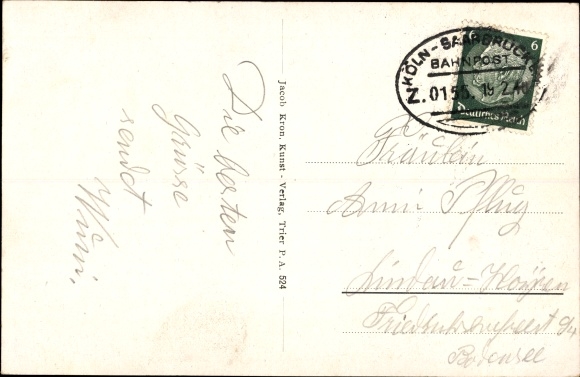 Die besten
Grüsse
sendet
Winni.
Jacob Kron, Kunst - Verlag, Trier P.A. 524
KÖLN-SAARBRÜCKEN
BAHNPOST
Z. 0155 19.2.40
6
Deutsches Reich
Fräulein
Anni Pflug
Lindau-Hoyren
Bodensee